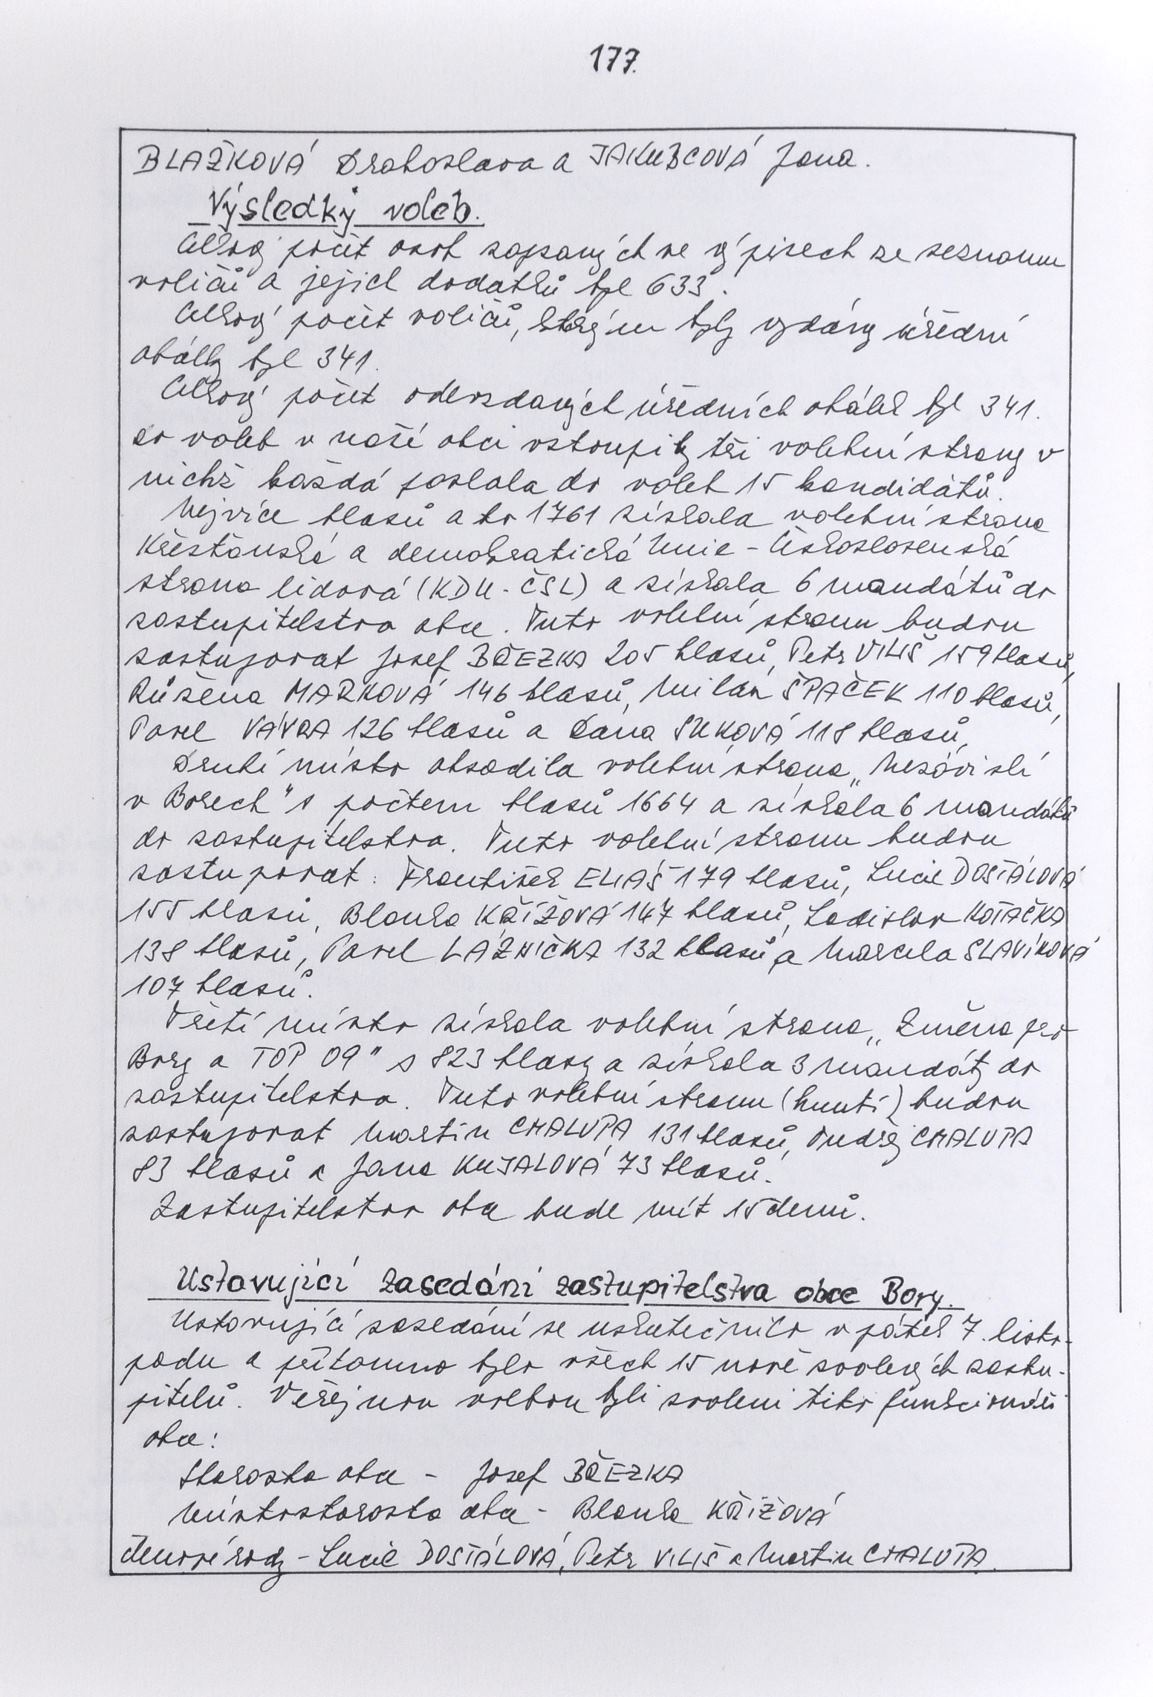 177.
BLAŽKOVÁ Drahoslava a JAKUBCOVÁ Jana.
Výsledky voleb.
Celkový počet osob zapsaných ve výpisech ze seznamu
voličů a jejich dodatků byl 633.
Celkový počet voličů, kterým byly vydány úřední
obálky byl 341.
Celkový počet odevzdaných úředních obálek byl 341.
do voleb v naší obci vstoupily tři volební strany v
nichž každá poslala do voleb 15 kandidátů.
Nejvíce hlasů a to 1761 získala volební strana
Křesťanská a demokratická Unie - Československá
strana lidová (KDU - ČSL) a získala 6 mandátů do
zastupitelstva obce. Tuto volební stranu budou
zastupovat Josef BŘEZKA 205 hlasů, Petr VILIŠ 159 hlasů,
Růžena MARKOVÁ 146 hlasů, Milan ŠPAČEK 110 hlasů,
Pavel VÁVRA 126 hlasů a Dana SUKOVÁ 118 hlasů,
Druhé místo obsadila volební strana „Nezávislí
v Borech" s počtem hlasů 1664 a získala 6 mandátů
do zastupitelstva. Tuto volební stranu budou
zastupovat: František ELIÁŠ 179 hlasů, Lucie DOSTÁLOVÁ
155 hlasů, Blanka KŘÍŽOVÁ 147 hlasů, Ladislav KOTAČKA
138 hlasů, Pavel LÁZNIČKA 132 hlasů a Marcela SLAVÍKOVÁ
107 hlasů.
Třetí místo získala volební strana „Změna pro
Bory a TOP 09" s 823 hlasy a získala 3 mandáty do
zastupitelstva. Tuto volební stranu (hnutí) budou
zastupovat Martin CHALUPA 131 hlasů, Ondřej CHALUPA
83 hlasů a Jana KUJALOVÁ 73 hlasů.
Zastupitelstvo obce bude mít 15 členů.
Ustavující zasedání zastupitelstva obce Bory.
Ustavující zasedání se uskutečnilo v pátek 7. listo-
padu a přítomno bylo všech 15 nově zvolených zastu-
pitelů. Veřejnou volbou byli zvoleni tito funkcionáři
obce:
Starosta obce - Josef BŘEZKA
Místostarosta obce - Blanka KŘÍŽOVÁ
Členové rady - Lucie DOSTÁLOVÁ, Petr VILIŠ a Martin CHALUPA.